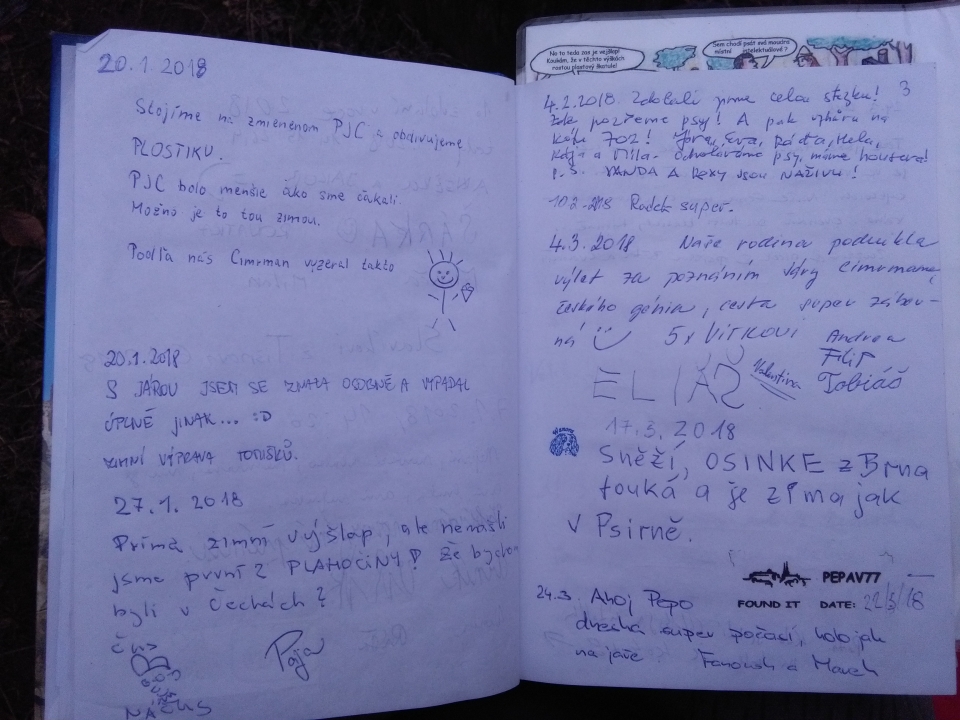 20.1.2018
Stojíme na zmienenom PJC a obdivujeme
PLOSTIKU.
PJC bolo menšie ako sme čakali.
Možno je to tou zimou.
Podľa nás Cimrman vyzeral takto
20.1.2018
S JÁROU JSEM SE ZNALA OSOBNĚ A VYPADAL
ÚPLNĚ JINAK... :D
ZIMNÍ VÝPRAVA
27.1.2018
Príma zimní výšlap, ale nenašli
jsme první 2 PLAHOČINY! Že bychom
byli v Čechách?
Pája
No to teda zas je vejšlap!
Koukám, že v těchto výškách
rostou plastový škatule!
Sem chodí psát své moudra
místní intelektuálové?
3
4.2.2018 Zdolali jsme celou stezku!
Zde pozřeme psy! A pak vzhůru na
kótu 702! Jára, Eva, Ráďa, Hela,
a Míla.
P.S. VANDA A REXY JSOU NAŽIVU!
10.2.2018 Radek super.
4.3.2018 Naše rodina podnikla
výlet za poznáním Járy Cimrmana,
českého génia, cesta super zábav-
ná 5x Vítkovi Andrea
Filip
ELIÁŠ Valentina Tobiáš
17.3.2018
Sněží, OSINKE z Brna
fouká a je zima jak
v Psirně.
PEPAV77
FOUND IT DATE: 22/3/18
24.3. Ahoj Pepo
dneska super počasí, holo jak
na jaře Fanoush a Marek